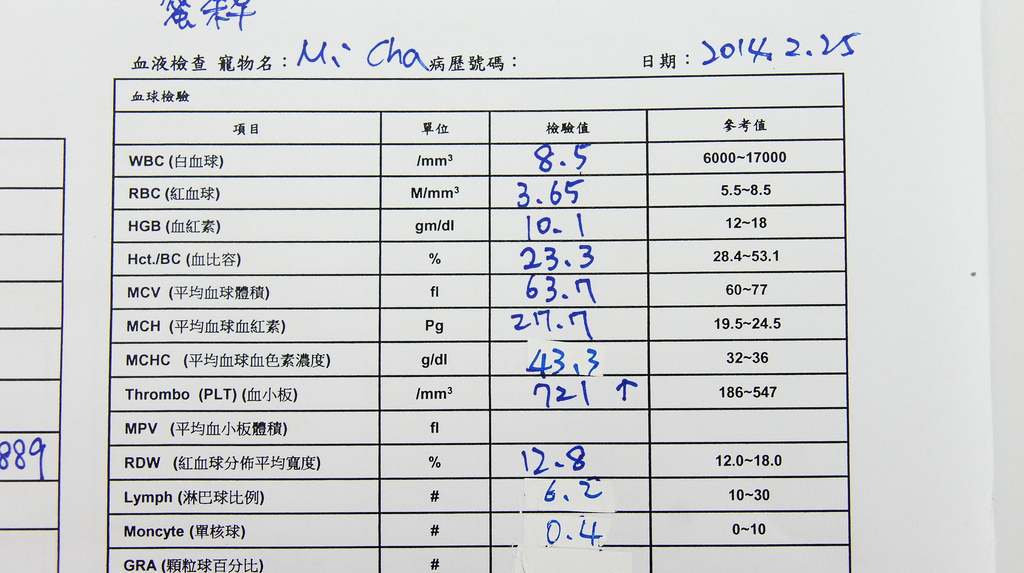 蜜茶
血液檢查 寵物名：Mi Cha 病歷號碼： 日期：2014.2.25
血球檢驗
項目 單位 檢驗值 參考值
WBC (白血球) /mm³ 8.5 6000~17000
RBC (紅血球) M/mm³ 3.65 5.5~8.5
HGB (血紅素) gm/dl 10.1 12~18
Hct./BC (血比容) % 23.3 28.4~53.1
MCV (平均血球體積) fl 63.7 60~77
MCH (平均血球血紅素) Pg 27.7 19.5~24.5
MCHC (平均血球血色素濃度) g/dl 43.3 32~36
Thrombo (PLT) (血小板) /mm³ 721 ↑ 186~547
MPV (平均血小板體積) fl
889
RDW (紅血球分佈平均寬度) % 12.8 12.0~18.0
Lymph (淋巴球比例) # 6.2 10~30
Moncyte (單核球) # 0.4 0~10
GRA (顆粒球百分比) #